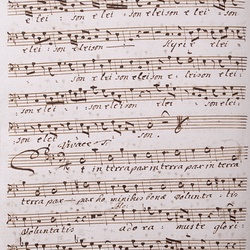 e lei son e lei son e lei son
e lei son eleison Kyri e elei
son e lei son elei son e leison elei
son elei son e lei son elei
son elei son.
Vivace
Et in terra pax in terra pax in terra
terra pax pax ho minibus bonæ volunta tis
Voluntatis adora muste glori